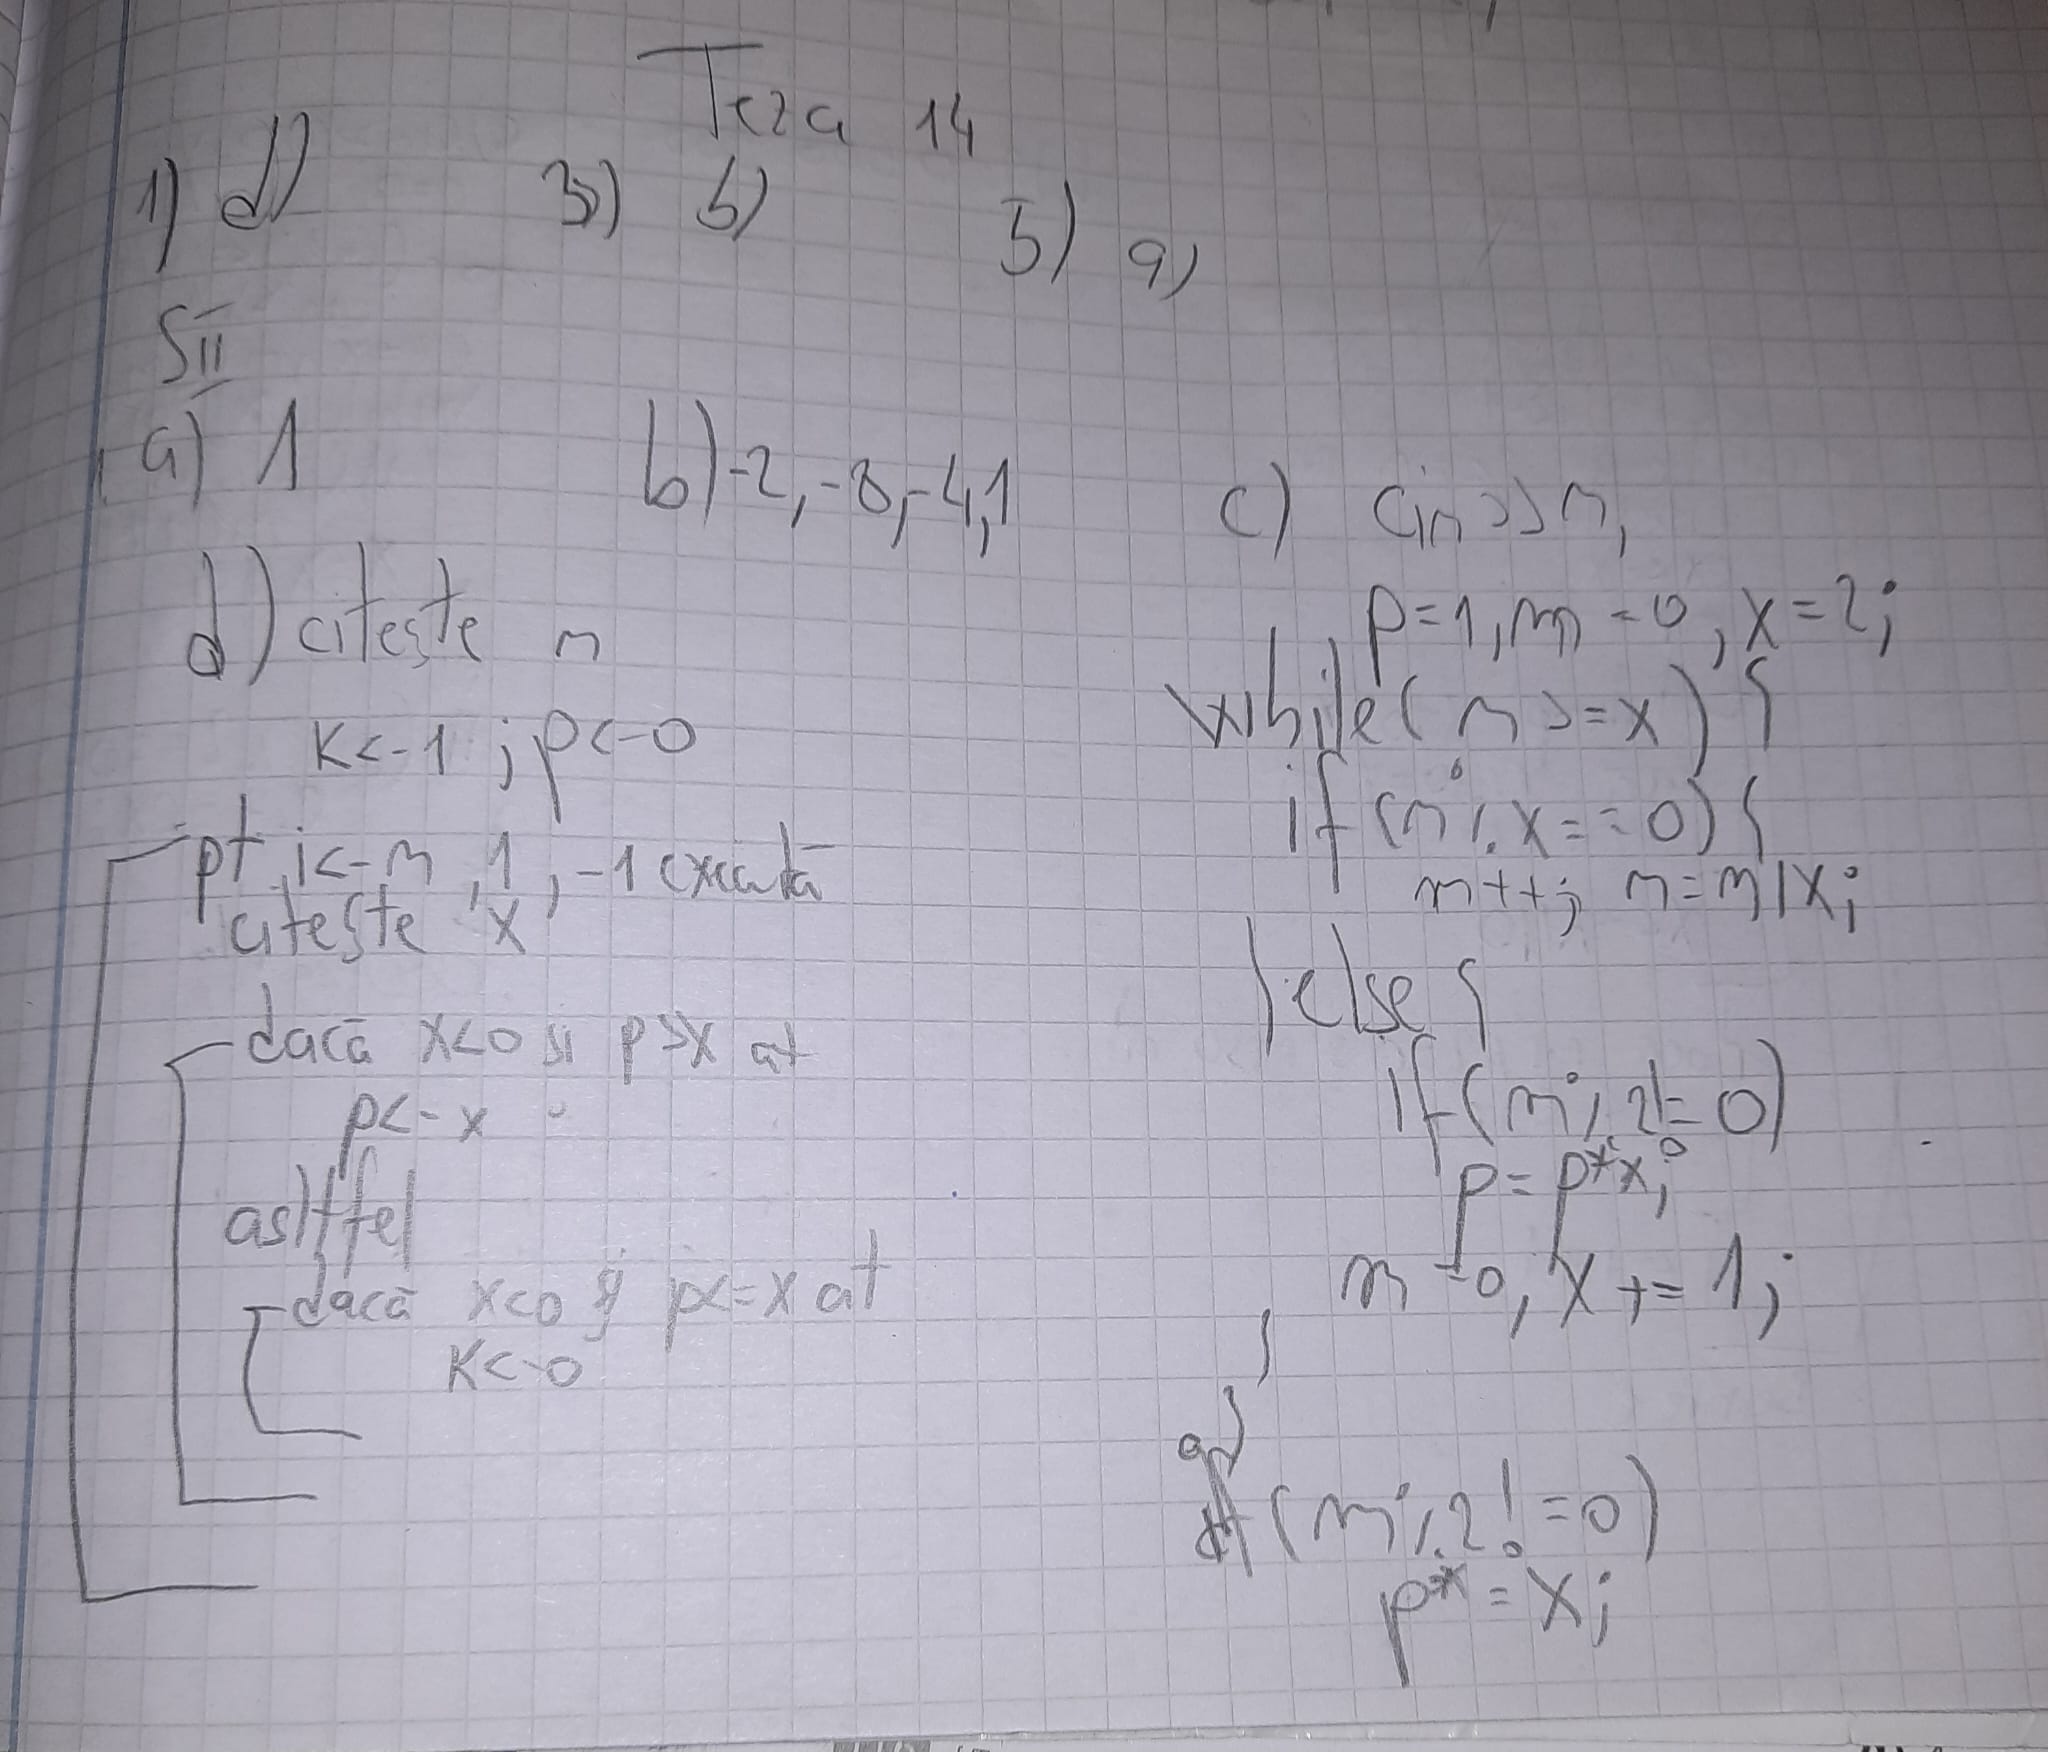 Teza 14
1) d) 3) b) 5) a)
SII
a) 1
b) -2, -8, -4, 1
d) citește n
k<-1 ; p<-0
pt i<-n, 1, -1 execută
citește x
dacă x<0 și p>x at
p<-x
astfel
dacă x<0 și p<=x at
k<-0
c) cin>>n,
p=1, m=0, x=2;
while(n>=x){
if(n%x==0){
m++; n=n/x;
}else{
if(m%2!=0)
p=p*x;
m=0, x+=1;
}
}
if(m%2!=0)
p*=x;